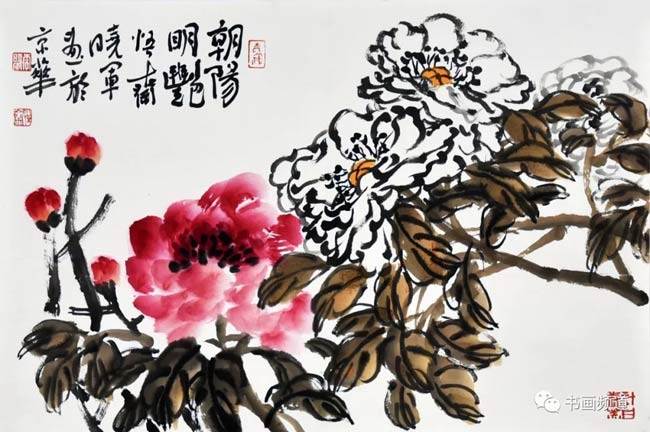 朝陽
明艷
悟
曉軍
畫於
京華
书画频道